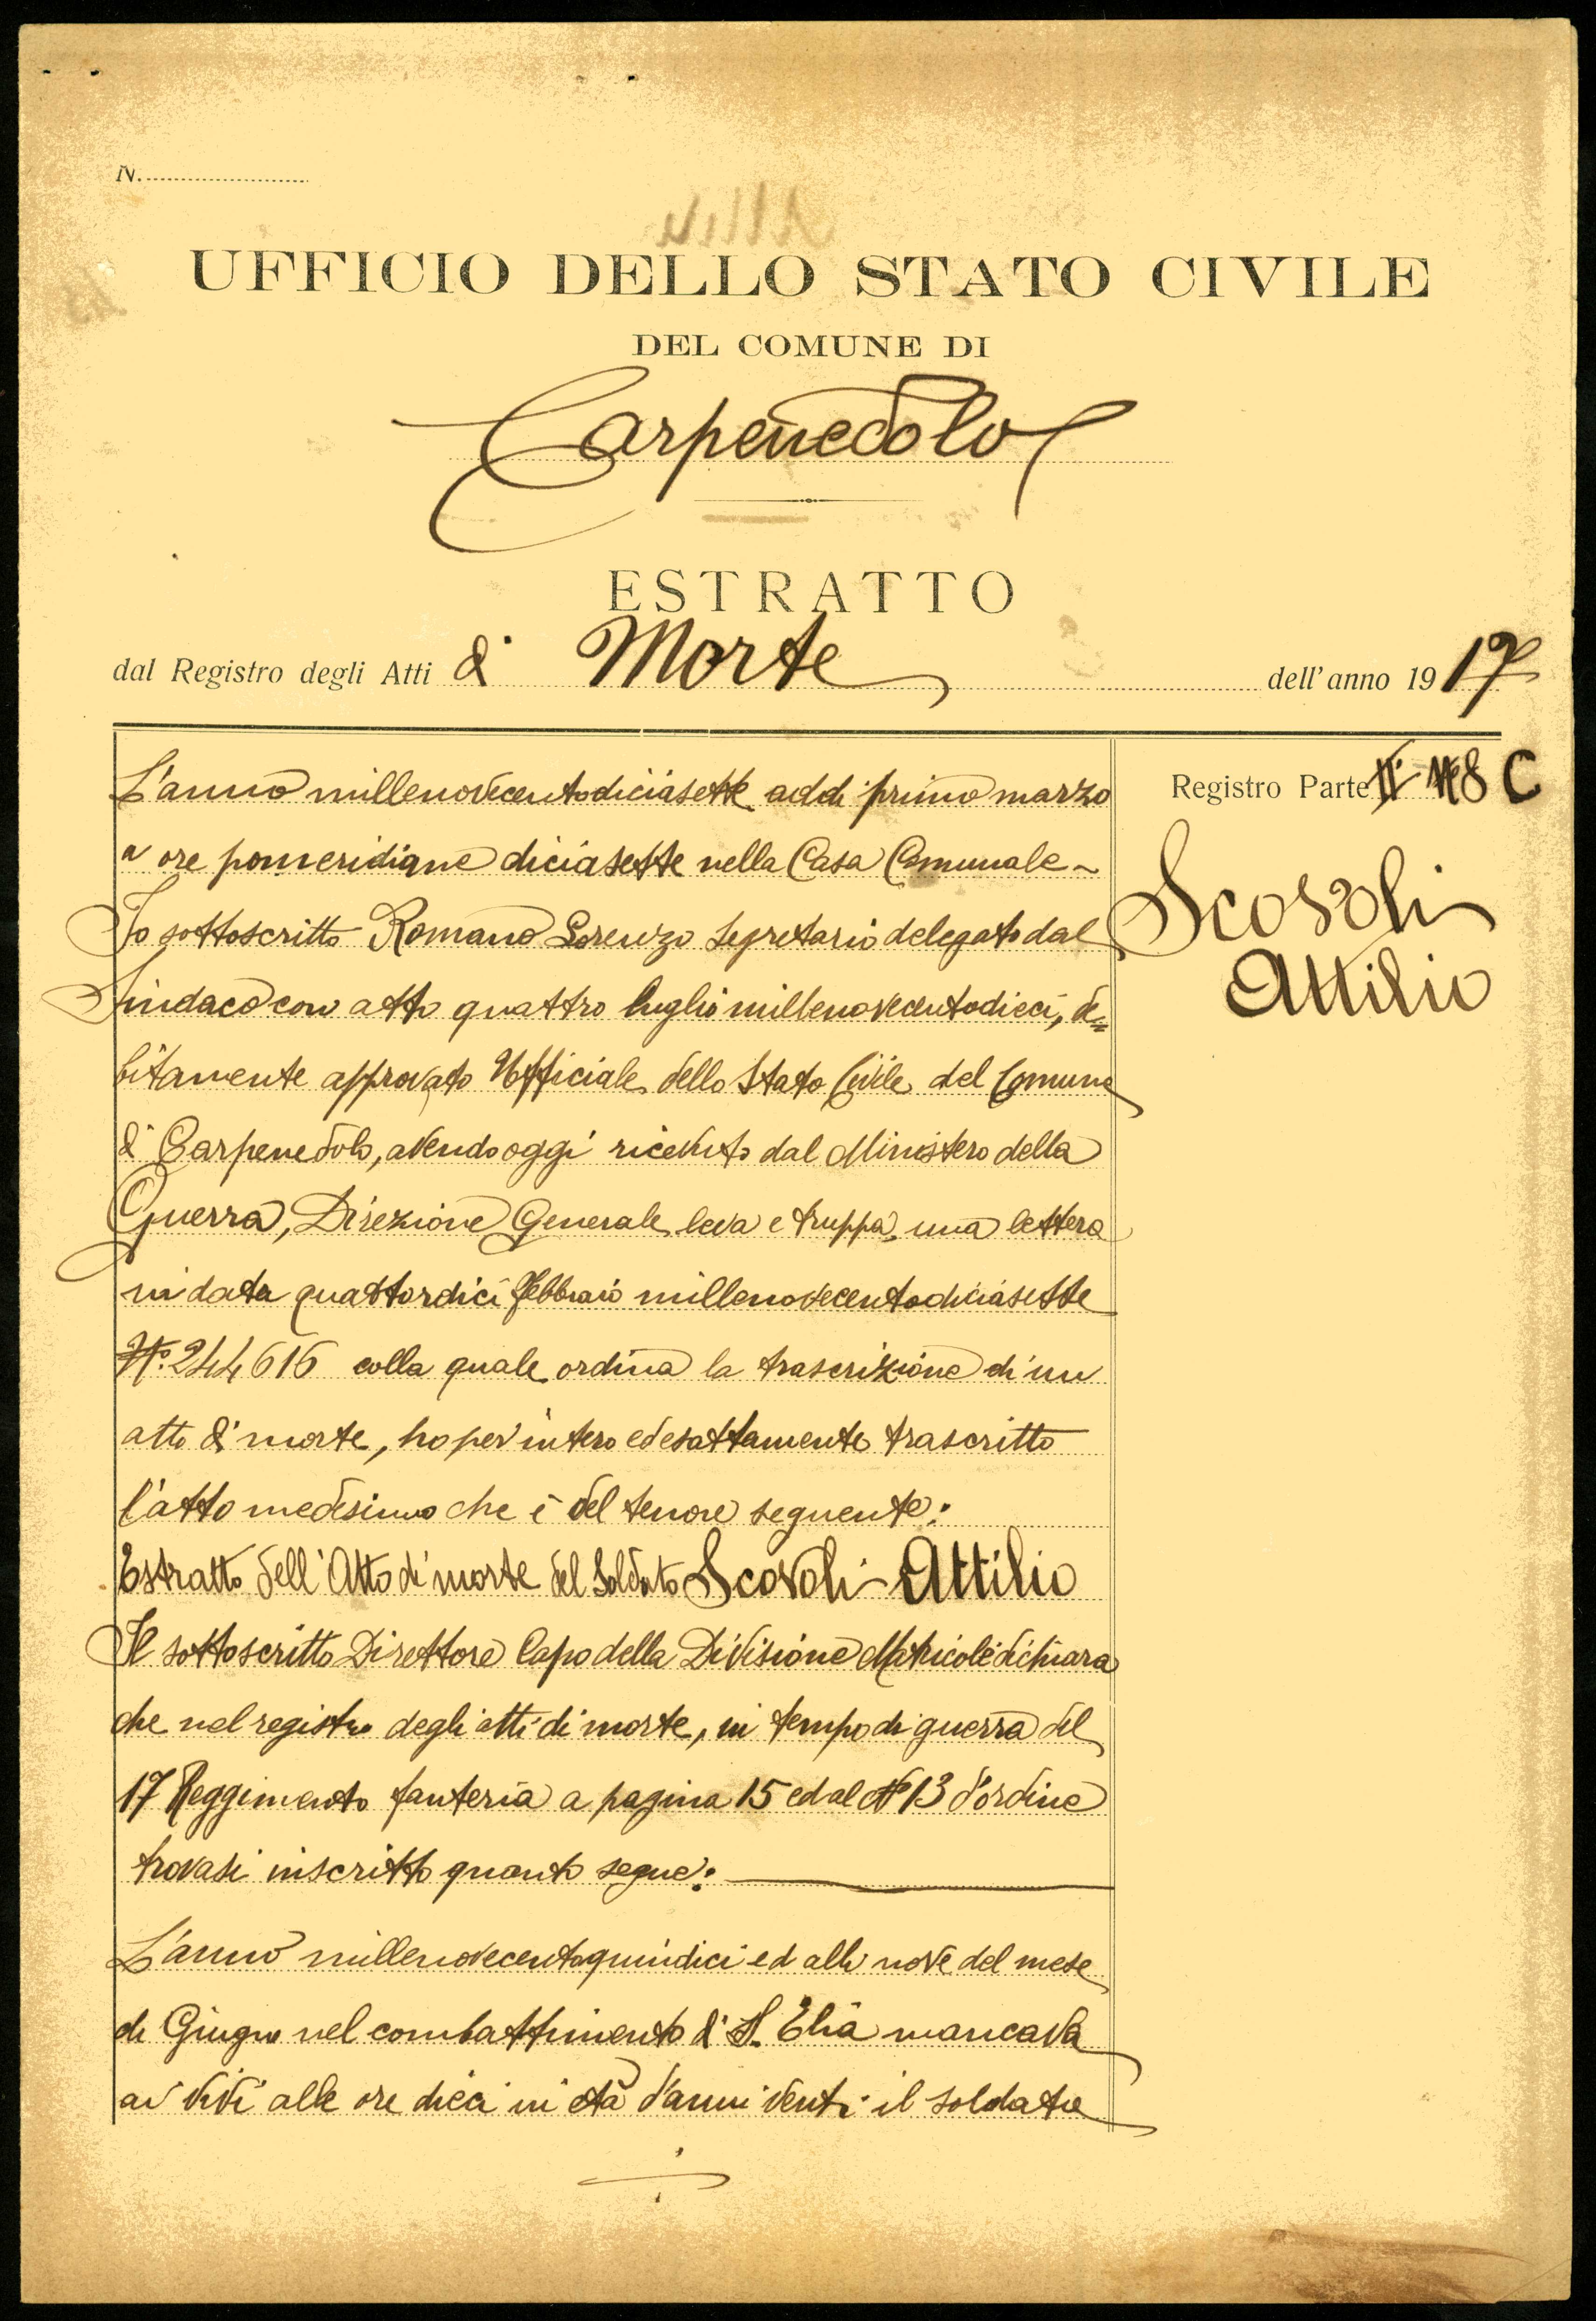 N.
UFFICIO DELLO STATO CIVILE
DEL COMUNE DI
Carpenedolo
ESTRATTO
dal Registro degli Atti di Morte dell'anno 1917
Registro Parte II N. 8 C
Scovoli
Attilio
L'anno millenovecentodiciasette addi primo marzo
a ore pomeridiane diciasette nella Casa Comunale~
Io sottoscritto Romano Lorenzo Segretario delegato dal
Sindaco con atto quattro luglio millenovecentodieci, de=
bitamente approvato Ufficiale dello Stato Civile del Comune
di Carpenedolo, avendo oggi ricevuto dal Ministero della
Guerra, Direzione Generale leva e truppa, una lettera
in data quattordici febbraio millenovecentodiciasette
N.° 244616 colla quale ordina la trascrizione di un
atto di morte, ho per intero ed esattamente trascritto
l'atto medesimo che è del tenore seguente:
Estratto dell'Atto di morte del Soldato Scovoli Attilio
Il sottoscritto Direttore Capo della Divisione Matricole dichiara
che nel registro degli atti di morte, in tempo di guerra del
17 Reggimento fanteria a pagina 15 ed al N° 13 d'ordine
trovasi inscritto quanto segue:
L'anno millenovecentoquindici ed alli nove del mese
di Giugno nel combattimento di S. Elia mancava
ai vivi alle ore dieci in età d'anni venti il soldato